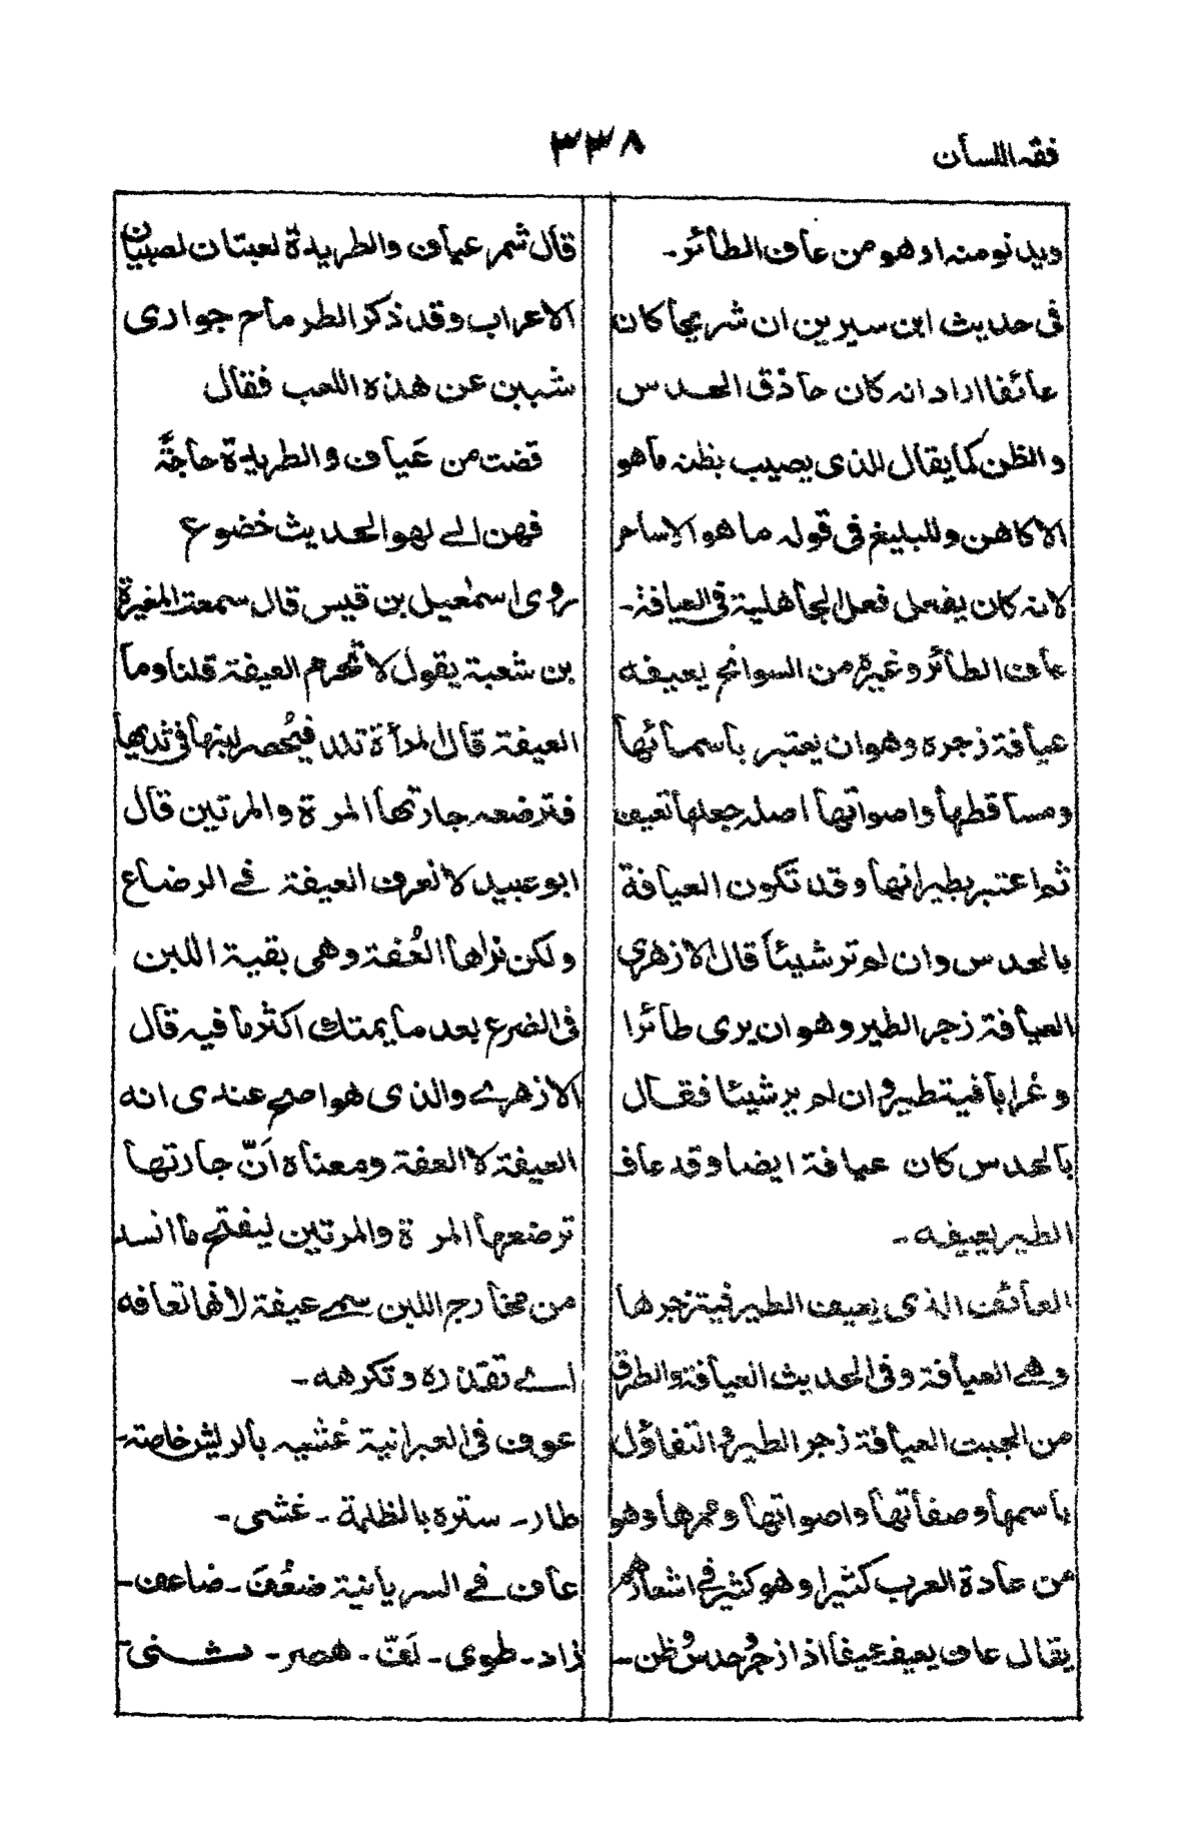 فقه اللسان
٣٣٨
ويدنو منه او هو من عاف الطائر۔
فی حديث ابن سيرين ان شريحا كان
عائفا اراد انه كان حاذق الحدس
والظن كما يقال للذی يصيب بظنه ما هو
الا كاهن وللبليغ فی قوله ما هو الا ساحر
لا نه كان يفعل فعل الجاهلية فی العيافة۔
عاف الطائر وغيره من السوانح يعيفه
عيافة زجره وهو ان يعتبر باسمائها
ومساقطها واصواتها اصله جعلها تعيف
ثم اعتبر بطيرانها وقد تكون العيافة
بالحدس وان لم تر شيئاً قال الازهری
العيافة زجر الطير وهو ان يری طائرا
وغرابا فيتطير وان لم ير شيئا فقال
بالحدس كان عيافة ايضا وقد عاف
الطير يعيفه۔
العائف الذی يعيف الطير فيتزجرها
وهی العيافة وفی الحديث العيافة والطرق
من الجبت العيافة زجر الطير والتفاؤل
باسمها وصفاتها واصواتها وممرها وهو
من عادة العرب كثيرا وهو كثير فی اشعارهم
يقال عاف يعيف عيفا اذا زجر وحدس وظن۔
قال شمر عياف والطريدة لعبتان لصبيان
الاعراب وقد ذكر الطرماح جواری
شببن عن هذه اللعب فقال
قضت من عَياف والطريدة حاجةً
فهن الی لهو الحديث خضوع
روی اسمٰعيل بن قيس قال سمعت المغيرة
بن شعبة يقول لا تُحرم العيفة قلنا وما
العيفة قال المرأة تلد فيُحصر لبنها فی ثديها
فترضعه جارتها المرة والمرتين قال
ابو عبيد لا نعرف العيفة فی الرضاع
ولكن نراها العُفة وهی بقية اللبن
فی الضرع بعد ما يمتك اكثر ما فيه قال
الازهری والذی هو اصح عندی انه
العيفة لا العفة ومعناه اَنّ جارتها
ترضعها المرة والمرتين ليفتح ما انسد
من مخارج اللبن سمی عيفة لانها تعافه
ای تقذره وتكرهه۔
عوف فی العبرانية غُشیيه بالريش خاصته۔
طار۔ ستره بالظلمة۔ غشی۔
عاف فی السريانية ضعُفَ۔ ضاعف۔
زاد۔ طوی۔ لَفّ۔ هصر۔ ثنی۔